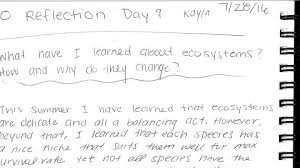 O Reflection Day 9 Kaylin 7/28/16
What have I learned about ecosystems?
How and why do they change?
This Summer I have learned that ecosystems
are delicate and all a balancing act. However,
beyond that, I learned that each species has
a nice niche that suits them well for max
survival rate yet not all species have the